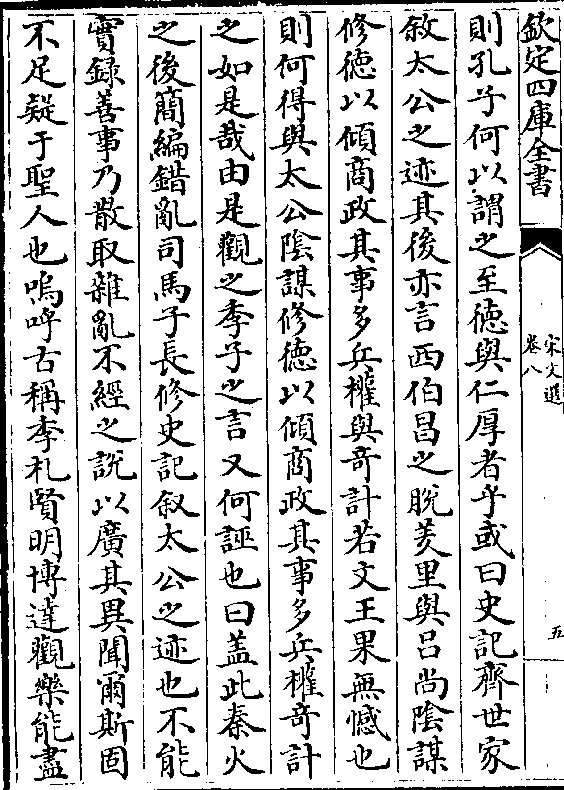 欽定四庫全書
宋文選
卷八
五
則孔子何以謂之至德與仁厚者乎或曰史記齊世家
敘太公之迹其後亦言西伯昌之脫羑里與呂尚陰謀
修德以傾商政其事多兵權與奇計若文王果無憾也
則何得與太公陰謀修德以傾商政其事多兵權奇計
之如是哉由是觀之季子之言又何誣也曰盖此秦火
之後簡編錯亂司馬子長修史記叙太公之迹也不能
實録善事乃散取雜亂不經之說以廣其異聞爾斯固
不足疑于聖人也嗚呼古稱季札賢明博達觀樂能盡